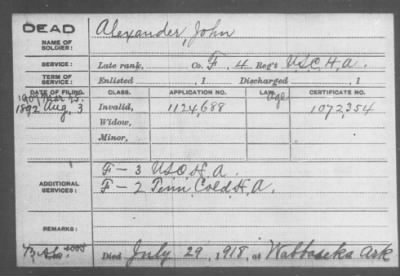 DEAD
NAME OF SOLDIER: Alexander, John
SERVICE: Late rank, Co. F, 4 Reg't U.S.C.H.A.
TERM OF SERVICE: Enlisted , 1 Discharged , 1
DATE OF FILING. CLASS. APPLICATION NO. LAW. CERTIFICATE NO.
1907 Mar 15. Age
1892 Aug. 3 Invalid, 1124,688 1072,354
Widow,
Minor,
F - 3 USC H. A.
ADDITIONAL SERVICES: F - 2 Tenn Cold H. A.
REMARKS:
Died July 29, 1918, at Wabbaseka Ark